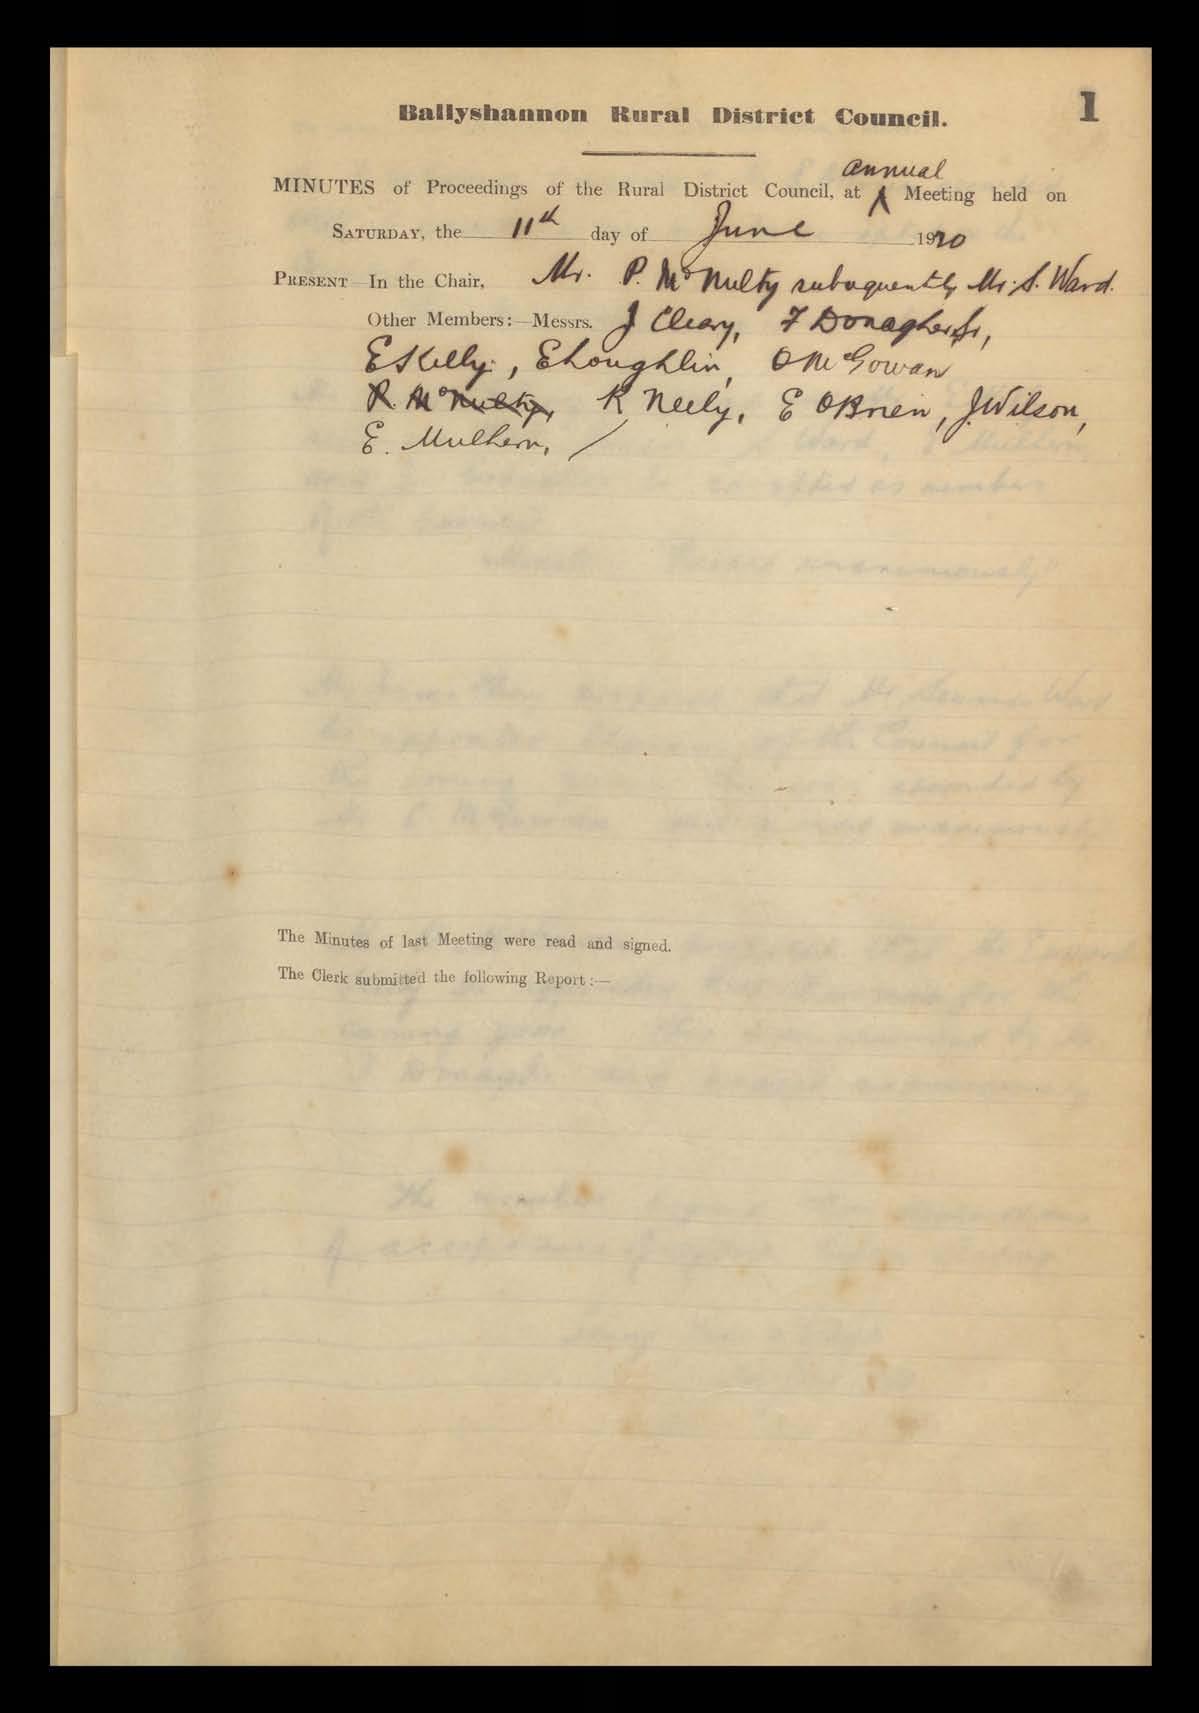 1
Ballyshannon Rural District Council.
annual
MINUTES of Proceedings of the Rural District Council, at ⁁ Meeting held on
SATURDAY, the 11th day of June 1920
PRESENT—In the Chair, Mr. P. McNulty subsequently Mr. S. Ward.
Other Members:—Messrs. J Cleary, F Donagher Sr,
E Kelly, E Loughlin, O McGowan
P. McNulty, R Neely, E OBrien, J. Wilson,
E. Mulhern,
The Minutes of last Meeting were read and signed.
The Clerk submitted the following Report:—